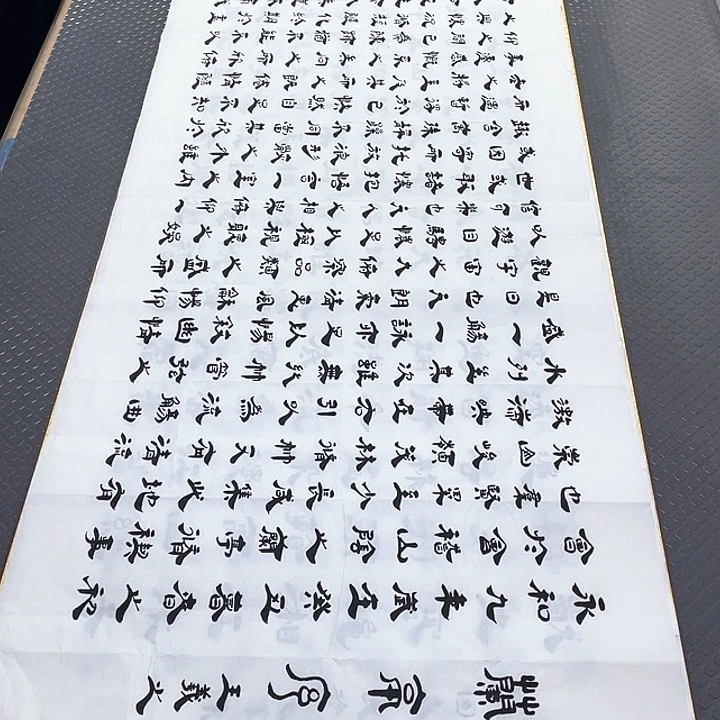 蘭亭序 王羲之
永和九年歲在癸丑暮春之初
會於會稽山陰之蘭亭脩禊事
也羣賢畢至少長咸集此地有
崇山峻領茂林脩竹又有清流
激湍映帶左右引以為流觴曲
水列坐其次雖無絲竹管弦之
盛一觴一詠亦足以暢敘幽情
是日也天朗氣清惠風和暢仰
觀宇宙之大俯察品類之盛所
以遊目騁懷足以極視聽之娛
信可樂也夫人之相與俯仰一
世或取諸懷抱悟言一室之內
或因寄所託放浪形骸之外雖
趣舍萬殊靜躁不同當其欣於
所遇暫得於己快然自足不知
老之將至及其所之既惓情隨
事遷感慨係之矣向之所欣俛
仰之間已為陳迹猶不能不以
之興懷況脩短隨化終期於盡